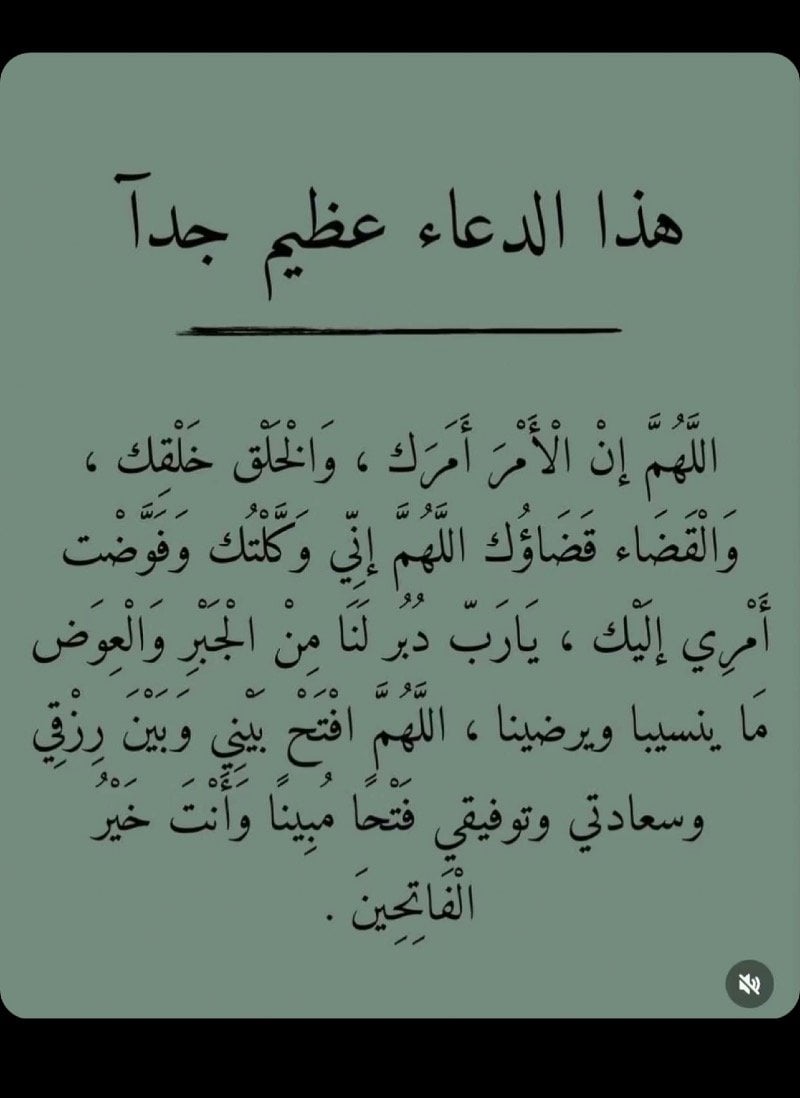 هذا الدعاء عظيم جدآ
اللَّهُمَّ إنْ الْأَمْرَ أَمَرَك ، وَالْخَلْق خَلْقِك ،
وَالْقَضَاء قَضَاؤُك اللَّهُمَّ إنِّي وَكَّلْتُك وَفَوَّضْت
أَمْرِي إلَيْك ، يَارَبّ دُبُر لَنَا مِنْ الْجَبْرِ وَالْعِوَض
مَا ينسيبا ويرضينا ، اللَّهُمَّ افْتَحْ بَيْنِي وَبَيْنَ رِزْقِي
وسعادتي وتوفيقي فَتْحًا مُبِينًا وَأَنْتَ خَيْرُ
الْفَاتِحِينَ .